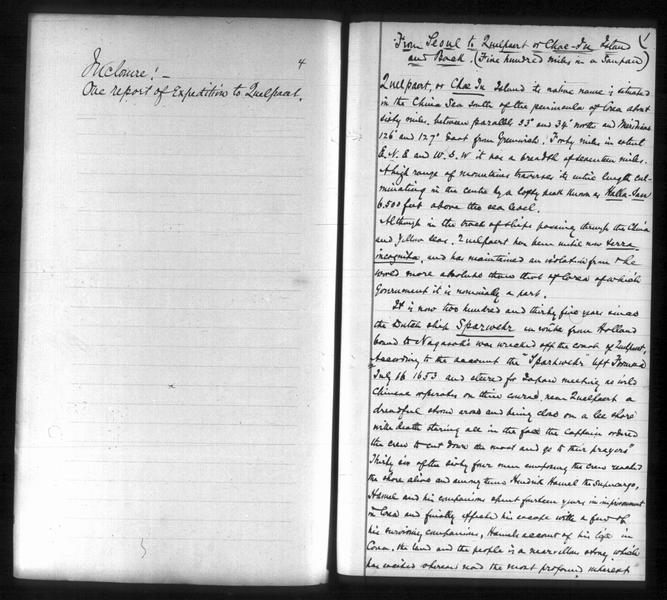 4
Inclosure: —
One report of Expedition to Quelpaert.
1
From Seoul to Quelpaert or Chae-Ju Islan
and Back. (Five hundred miles in a Sampan)
Quelpaert, or Chae Ju Island its native name is situated
in the China Sea south of the peninsula of Corea about
sixty miles. between parallels 33° and 34° north and Meridians
126° and 127° East from Greenwich. Forty miles in extent
E. N. E and W. S. W it has a breadth of seventeen miles.
A high range of mountains traverses its entire length cul-
minating in the centre by a lofty peak known as Halla-San
6.500 feet above the sea level.
Although in the track of ships passing through the China
and Yellow Seas. Quelpaert has been until now terra
incognita, and has maintained an isolation from the
world more absolute than that of Corea of which
Government it is nominally a part.
It is now two hundred and thirty five years since
the Dutch ship Sparwehr en route from Holland
bound to Nagasaki was wrecked off the coast of Quelpaert,
According to the account the "Sparwehr" left
July 16 1653 and steered for Japan meeting as wild
Chinese on their near Quelpaert a
dreadful storm arose and being close on a lee shore
with death staring all in the face the Captain ordered
the crew to cut down the mast and go to their prayers"
Thirty six of the sixty four men composing the crew reached
the shore alive and among them Hendrick Hamel the Supercargo,
Hamel and his companions spent fourteen years in imprisonment
in Corea and finally effected his escape with a few of
his surviving companions, Hamels account of his life in
Corea, the land and the people is a marvellous story, which
has excited wherever read the most profound interest